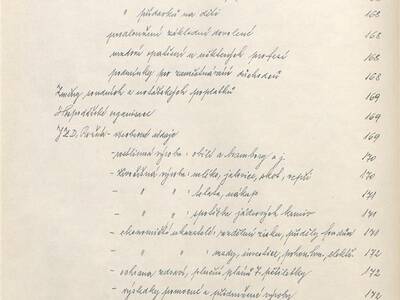 " přídavků na děti 168
prodloužení základní dovolené 168
mzdová opatření u některých profesí 168
podmínky pro zaměstnávání důchodců 168
Změny soudních a notářských poplatků 169
Hospodářské organisace 169
JZD, - všeobecné údaje 169
- rostlinná výroba: obilí a brambory a j. 170
- živočišná výroba: mléko, jalovice, skot, vepři 170
- " " : telata, nákup 171
- " " : spotřeba jádrových krmiv 171
- ekonomičtí ukazatelé: rozdělení zisku, příděly fondům 171
- " " : mzdy, investice, pohon. hm., elektř. 172
- ochrana zdraví, plnění plánu 7. pětiletky 172
- výsledky pomocné a přidružené výroby 172